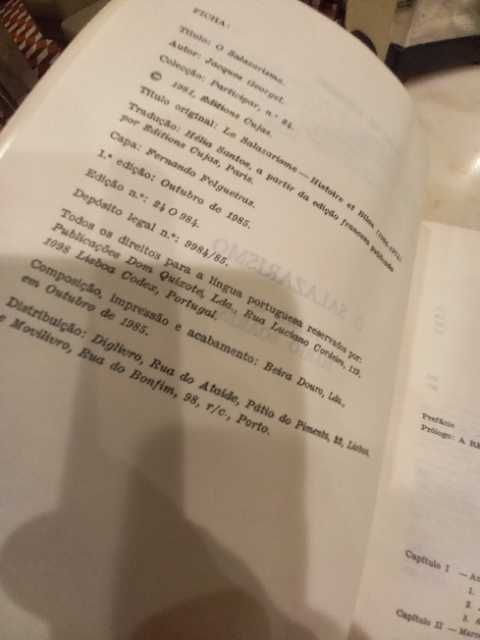 FICHA:
Título: O Salazarismo.
Autor: Jacques Georgel.
Colecção: Participar, n.º 24.
© 1981, Éditions Cujas.
Título original: Le Salazarisme — Histoire et Bilan
Tradução: Hélia Santos, a partir da edição francesa publicada
por Éditions Cujas, Paris.
Capa: Fernando Felgueiras.
1.ª edição: Outubro de 1985.
Edição n.º: 24 O 984.
Depósito legal n.º: 9984/85.
Todos os direitos para a língua portuguesa reservados por:
Publicações Dom Quixote, Lda., Rua Luciano Cordeiro, 119,
1098 Lisboa Codex, Portugal.
Composição, impressão e acabamento: Beira Douro, Lda.,
em Outubro de 1985.
Distribuição: Diglivro, Rua do Ataíde, Pátio do Pimenta, Lisboa,
e Movilivro, Rua do Bonfim, 98, r/c., Porto.
Prefácio
Prólogo: A
Capítulo I —
1.
2.
3.
Capítulo II —